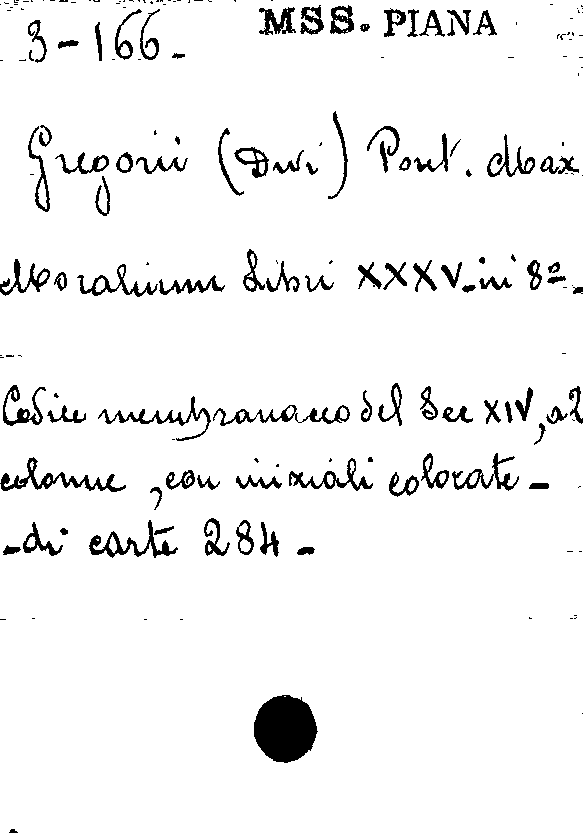 MSS. PIANA
3-166-
Gregorii (Divi) Pont. Max
Moralium Libri XXXV-in 8º-
Codice membranaceo del Sec XIV, a 2
colonne, con iniziali colorate-
-di carte 284-